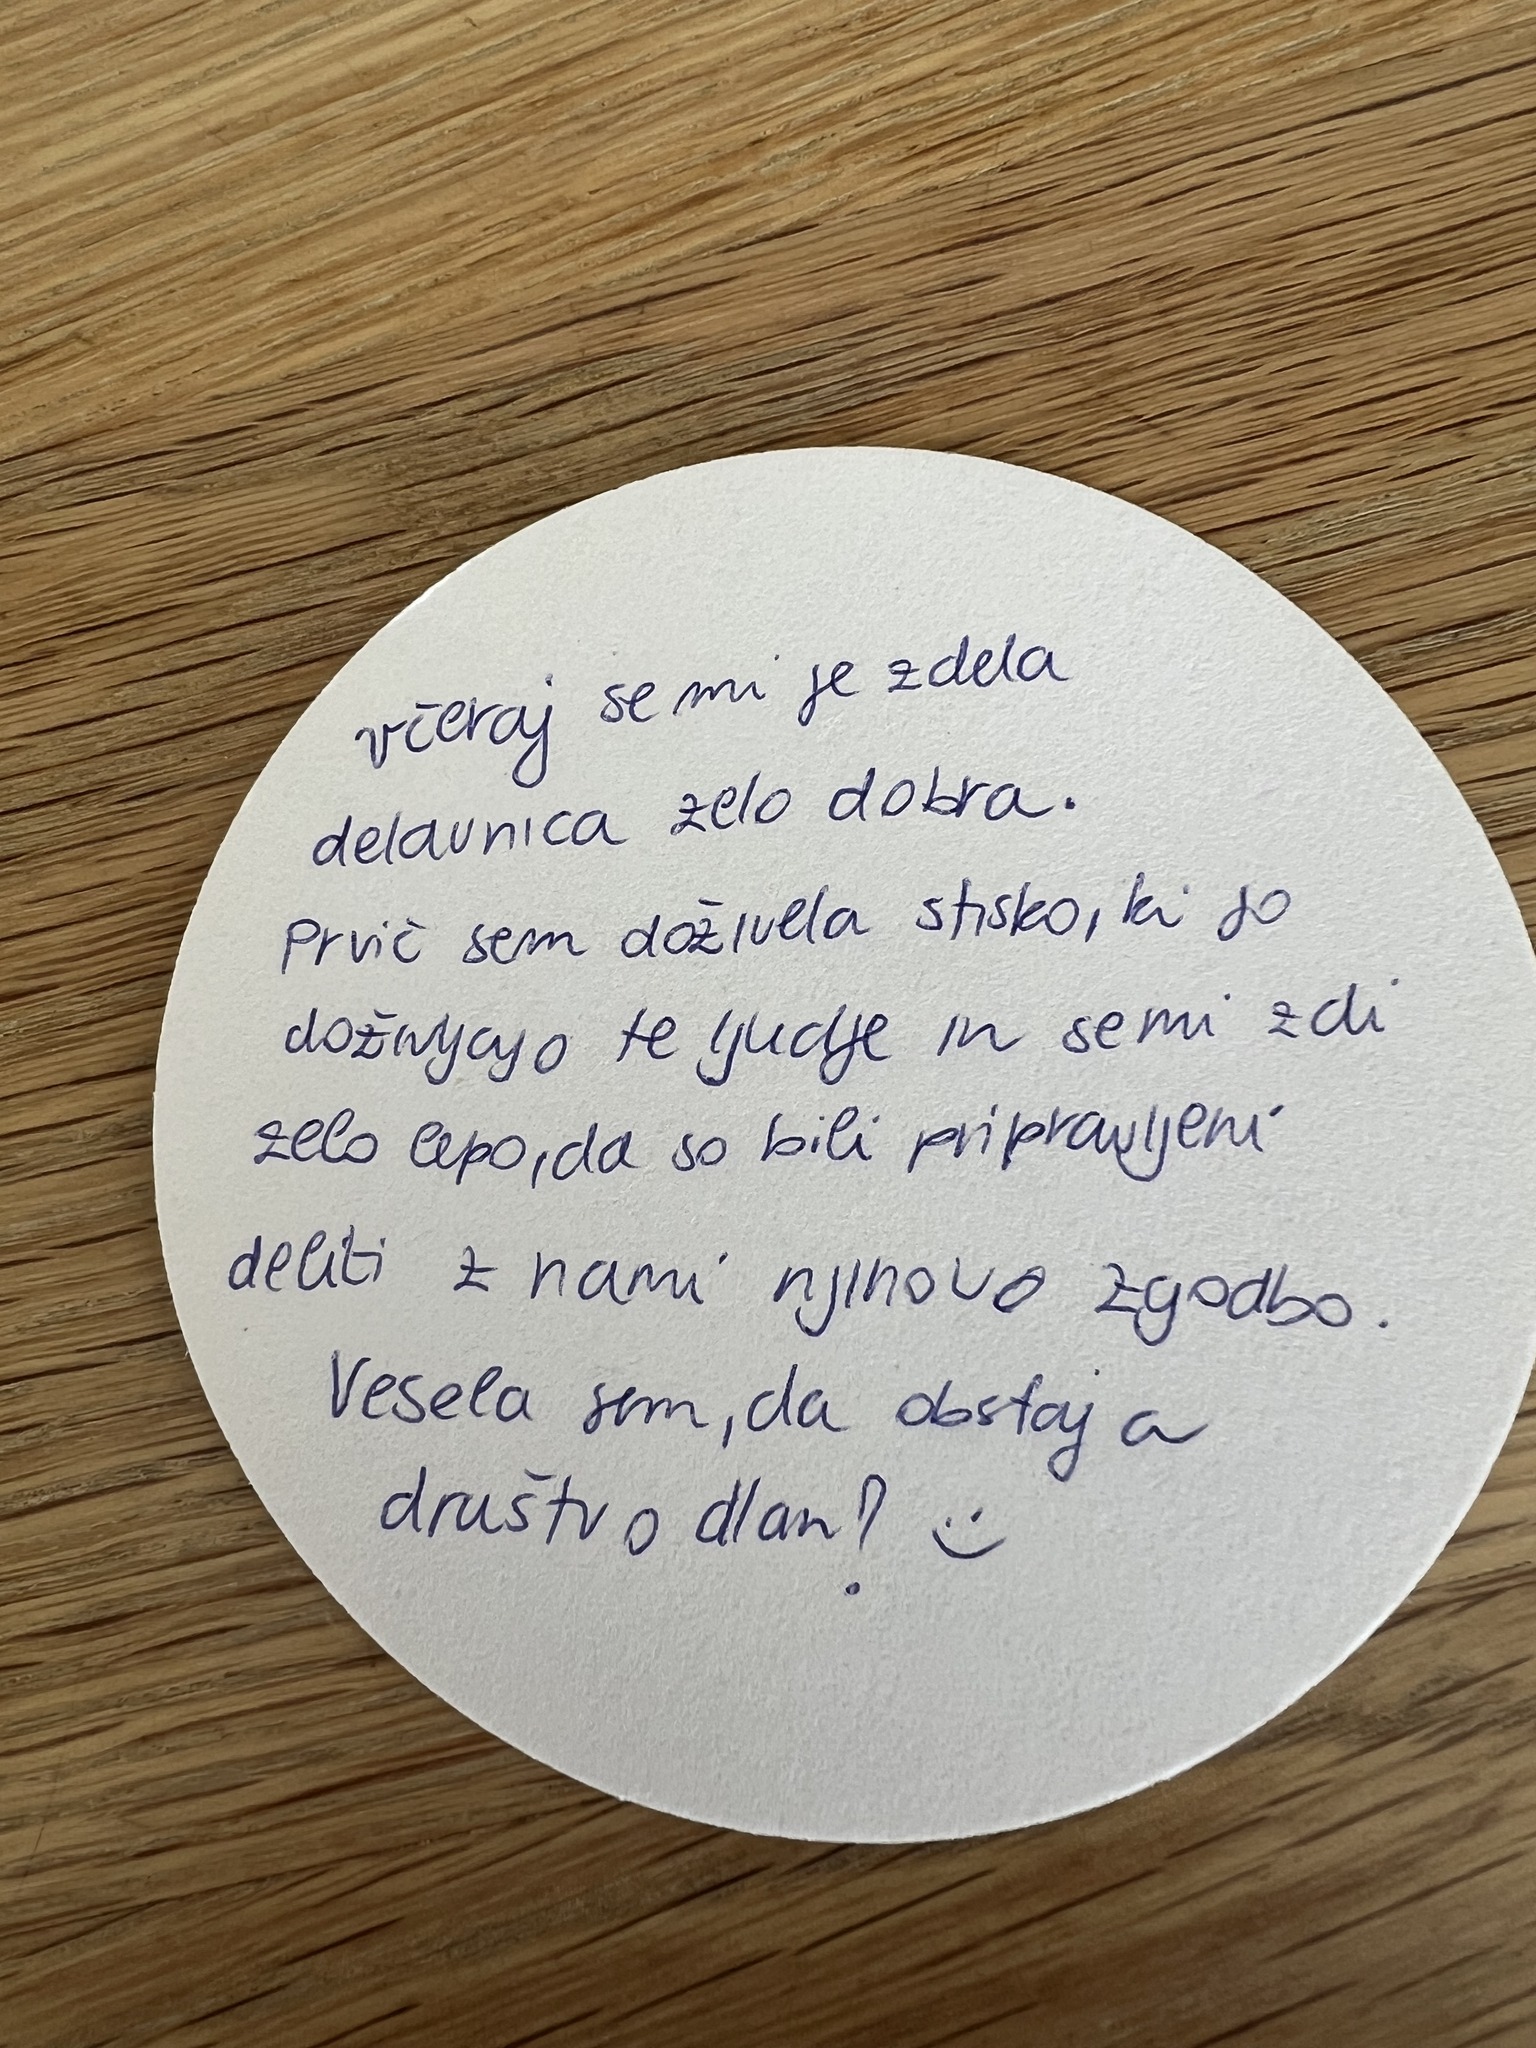 včeraj se mi je zdela
delavnica zelo dobra.
Prvič sem doživela stisko, ki jo
doživljajo te ljudje in se mi zdi
zelo lepo, da so bili pripravljeni
deliti z nami njihovo zgodbo.
Vesela sem, da obstaja
društvo dlan! :)